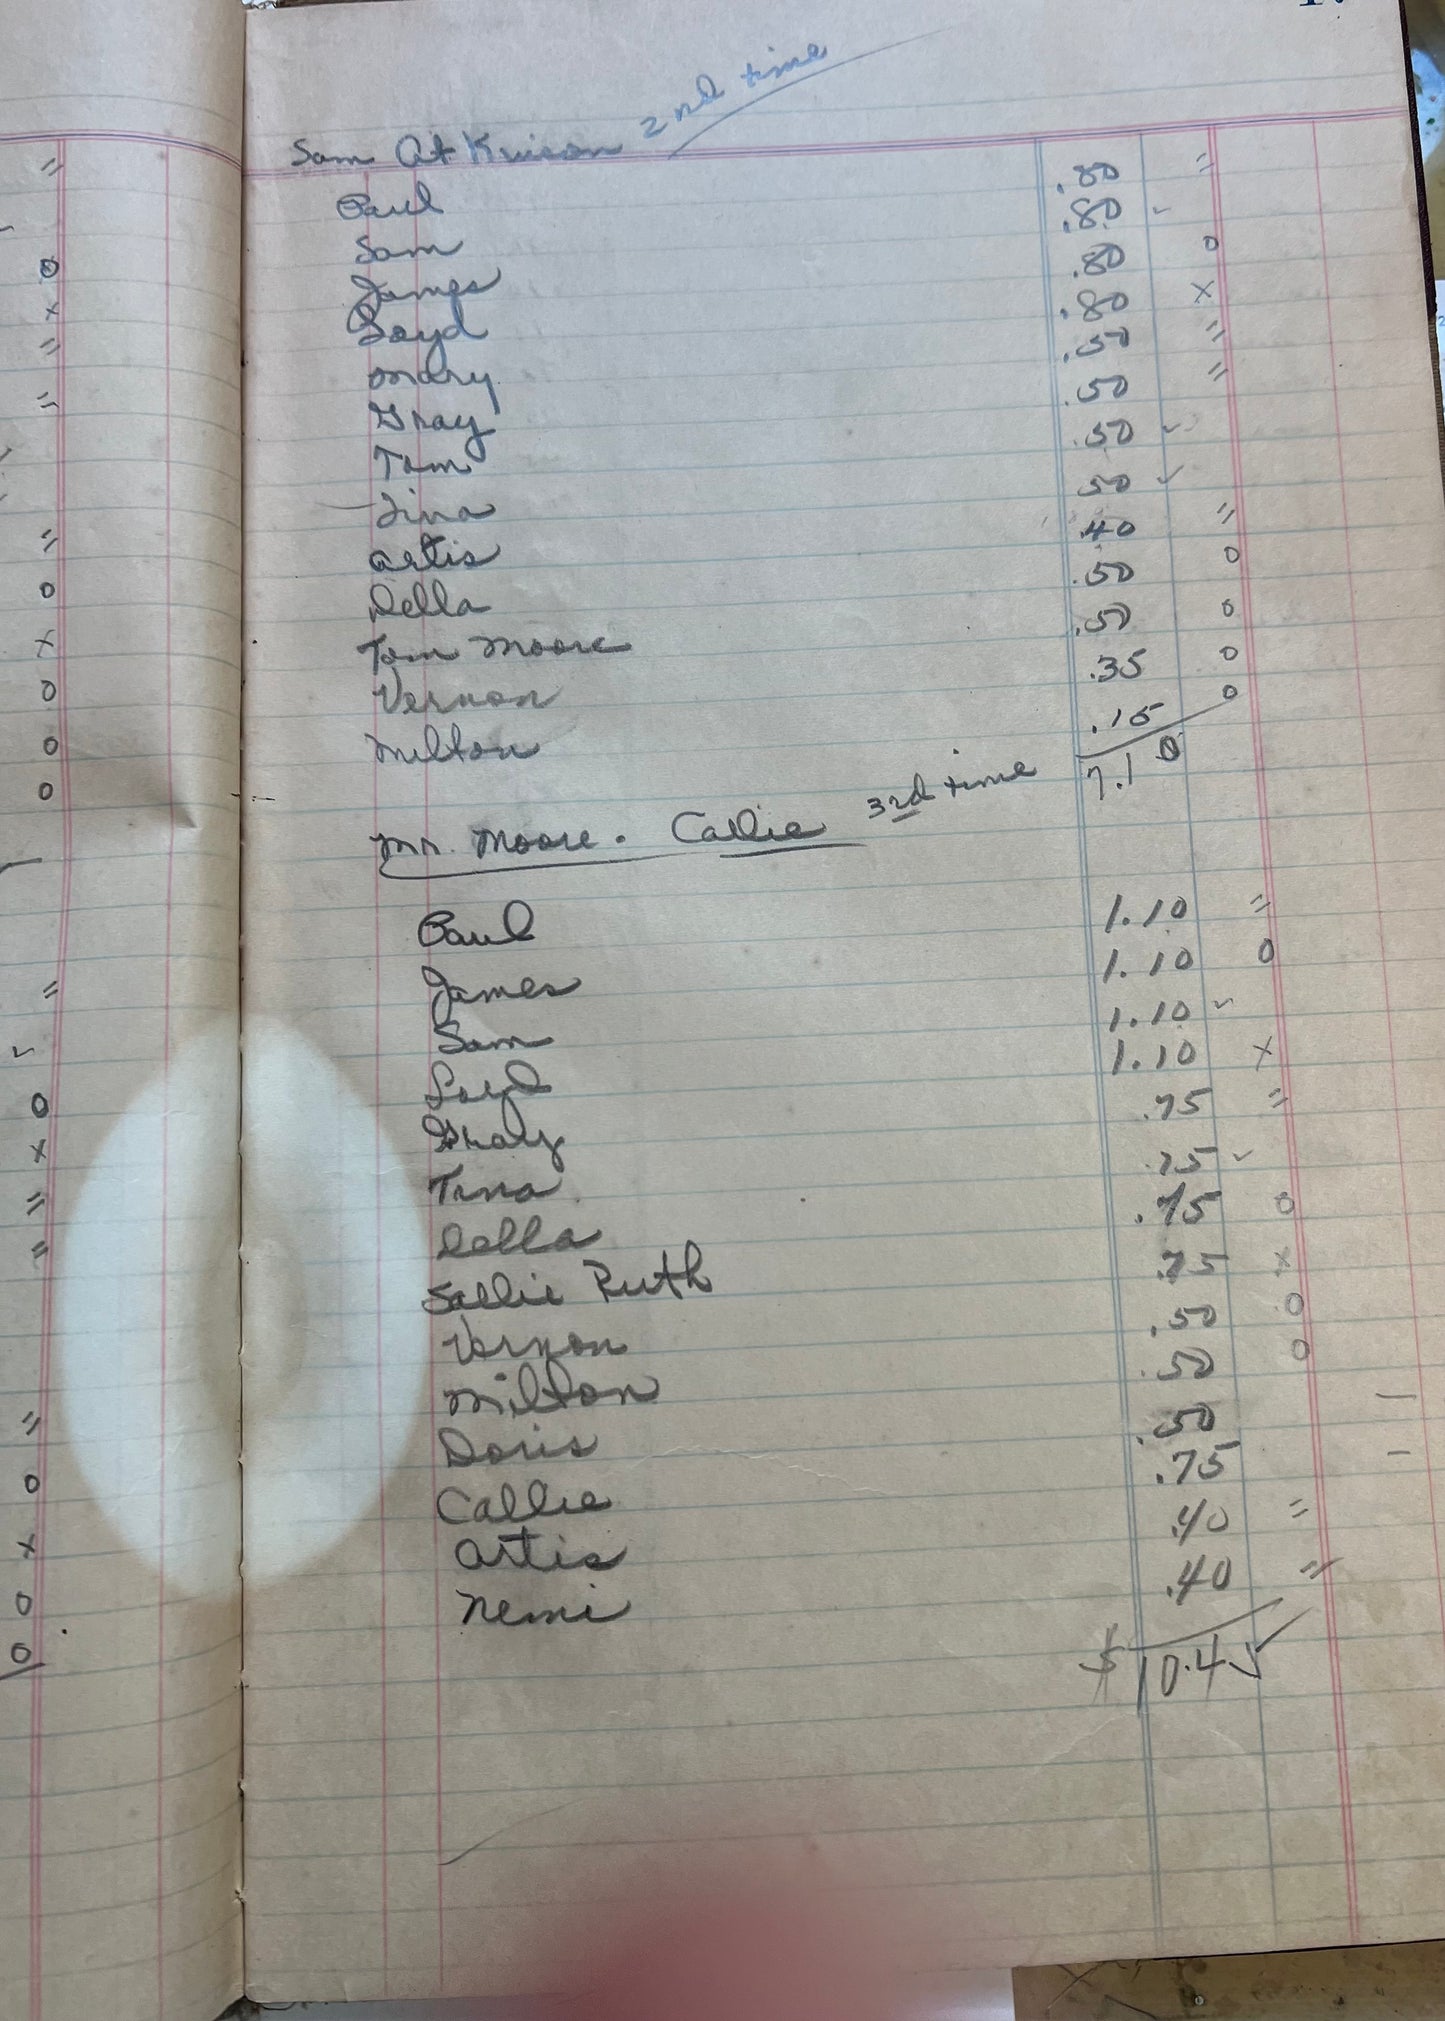 Sam At Kinison 2nd time
Paul .80 "
Sam .80 ✓
James .80 0
Loyd .80 x
Mary .50 "
Gray .50 "
Tom .50 ✓
Tina 50 ✓
Artis .40 "
Della .50 0
Tom Moore .50 0
Vernon .35 0
Milton .15 0
7.10
Mr. Moore. Callie 3rd time
Paul 1.10 "
James 1.10 0
Sam 1.10 ✓
Loyd 1.10 x
Gray .75 "
Tina .75 ✓
Della .75 0
Sallie Ruth .75 x
Vernon .50 0
Milton .50 0
Doris .50 —
Callie .75 —
Artis .40 "
Nemi .40 "
$10.45